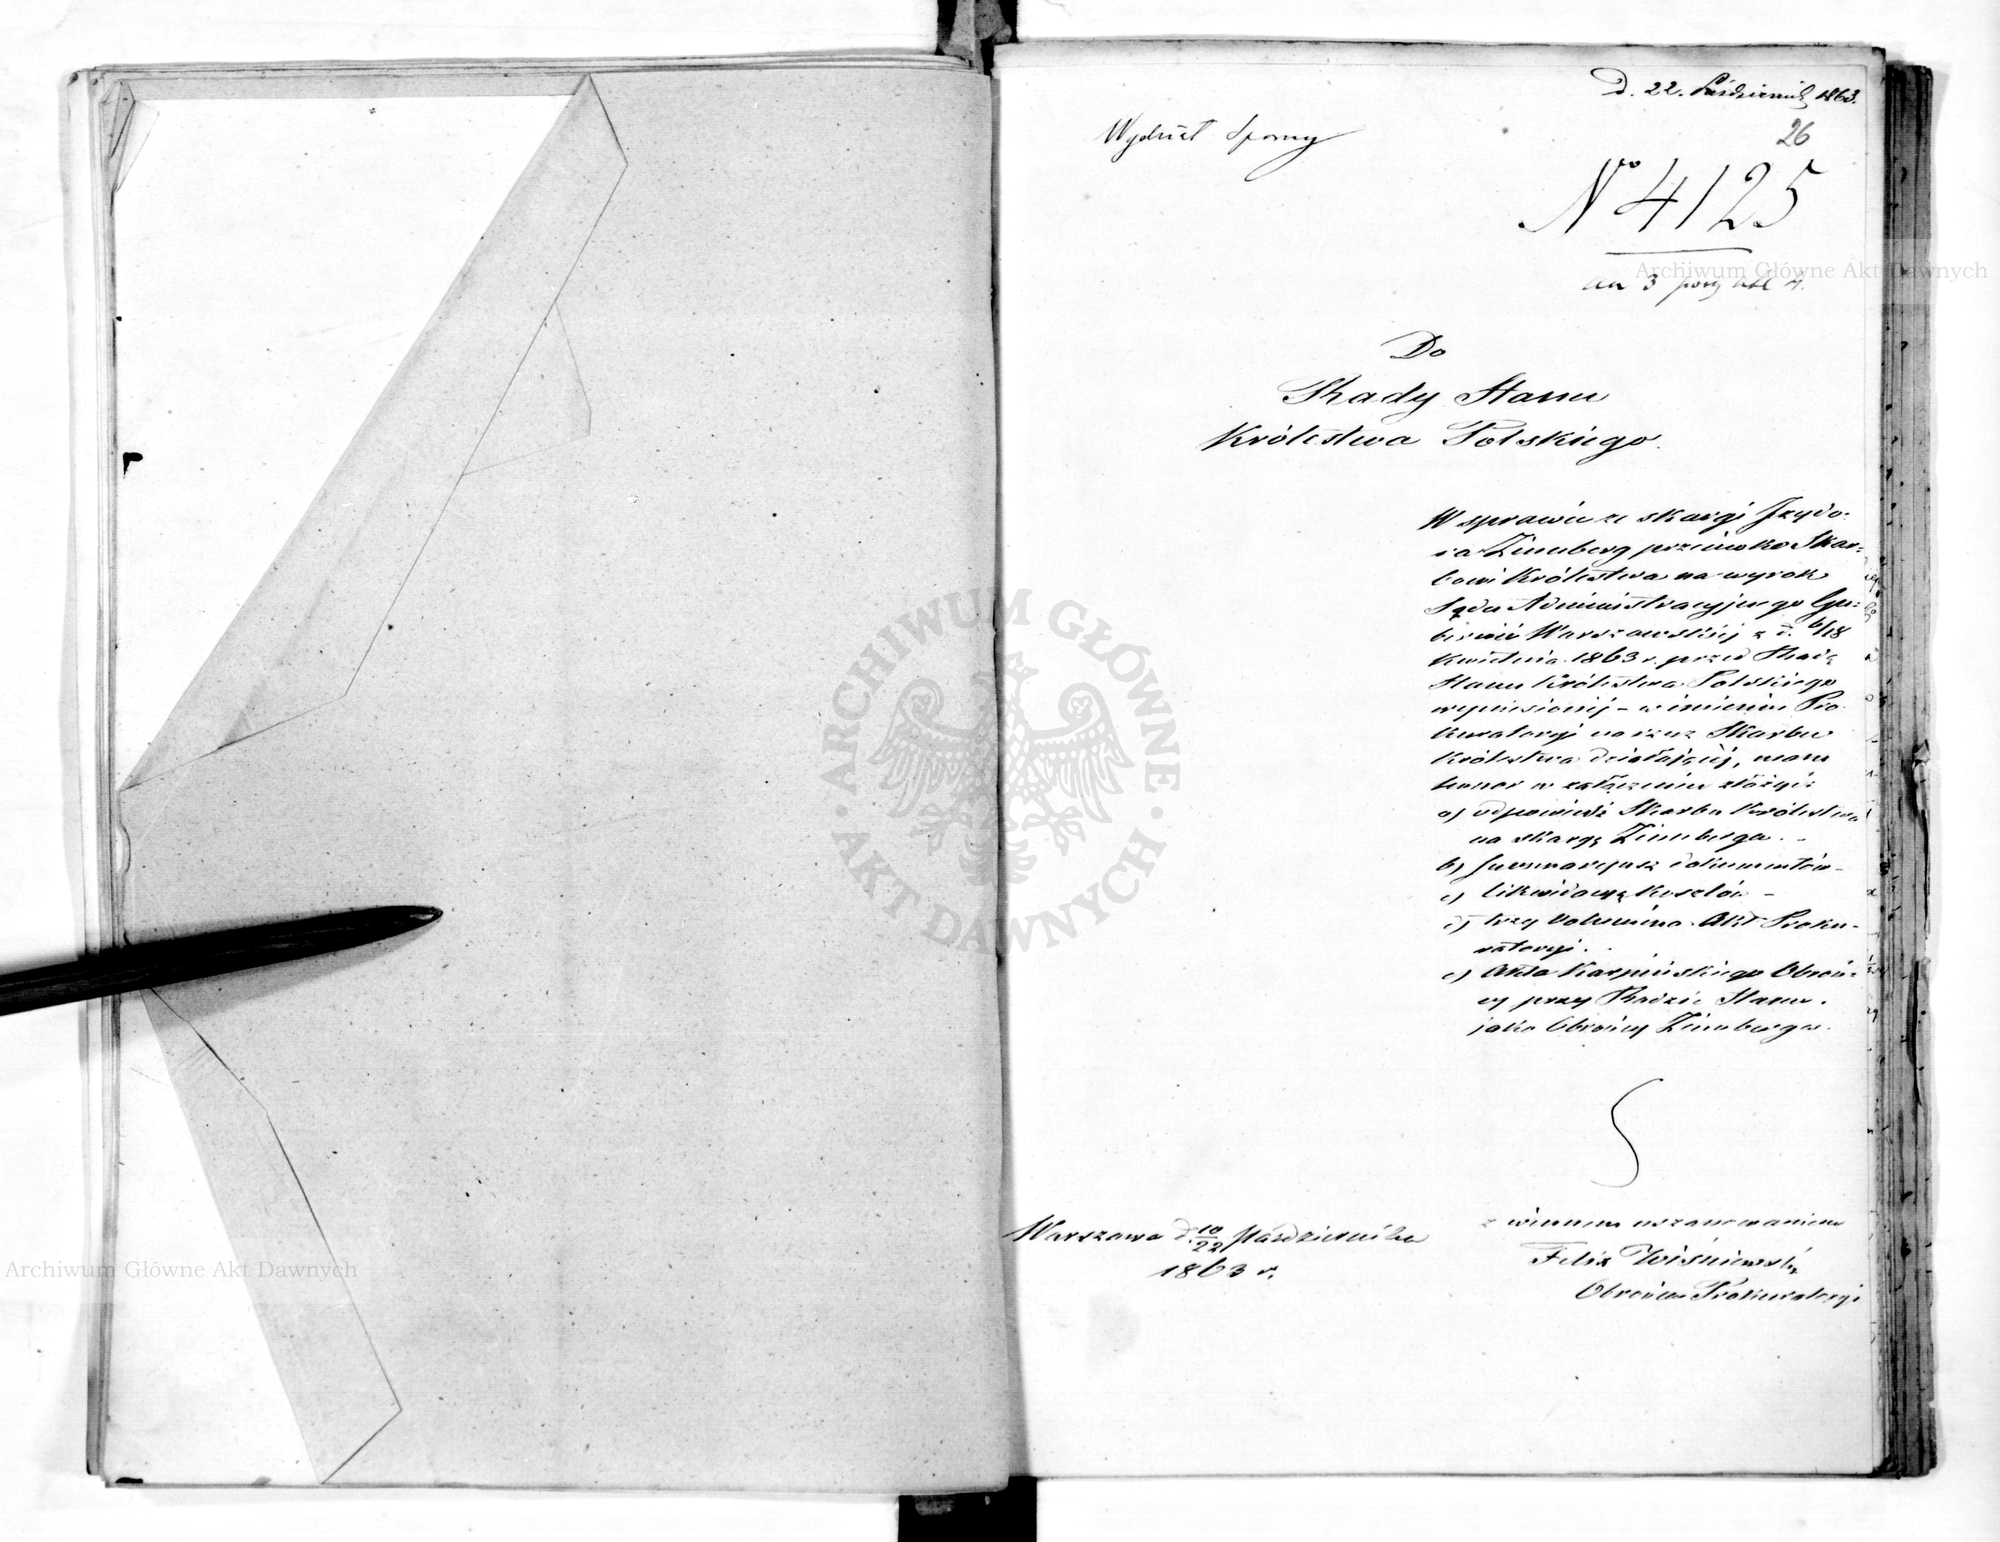 D. 22. Października 1863.
26
Wydział Sporny
No 4125
Do
Rady Stanu
Królestwa Polskiego.
W sprawie ze skargi Izydo-
ra Zinnberg przeciwko Skar-
bowi Królestwa na wyrok
Sądu Administracyjnego Gu-
bernii Warszawskiej z d. 6/18
Kwietnia 1863 r. przed Radę
Stanu Królestwa Polskiego
wyniesionej – w imieniu Pro-
kuratoryi na rzecz Skarbu
Królestwa działającej, mam
honor w załączeniu złożyć:
a) odpowiedź Skarbu Królestwa
na skargę Zinnberga. –
b) Summaryusz dokumentów –
c) likwidacyę kosztów –
d) trzy Volumina Akt Proku-
ratoryi.
e) Akta Karpińskiego Obroń-
cy przy Radzie Stanu.
jako Obrońcy Zinnberga.
Warszawa d. 10/22 Października
1863 r.
z winnem uszanowaniem
Felix Wiśniewski
Obrońca Prokuratoryi
ARCHIWUM GŁÓWNE AKT DAWNYCH
Archiwum Główne Akt Dawnych
Archiwum Główne Akt Dawnych